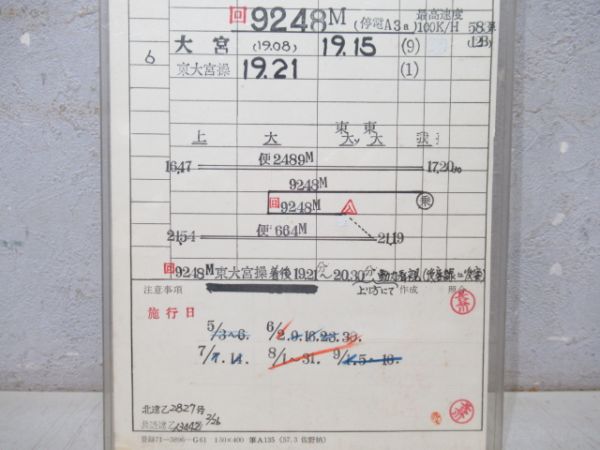 回 9248M (停電A3a) 最高速度 100K/H
大宮 (19.08) 19.15 (9)
6
東大宮操 19.21 (1)
上 大 東大 東大
16.47 便2489M 17.20
9248M
回9248M 乗
21.54 便664M 21.19
回9248M 東大宮操着後19.21分~20.30分
注意事項 作成 照合
施行日
5/3~6. 6/2.9.16.23.30.
7/7.14. 8/1~31. 9/1.5~16.
北達乙2827号
登録71—3896—G61 150×400 軍A135 (57.3 佐野納)